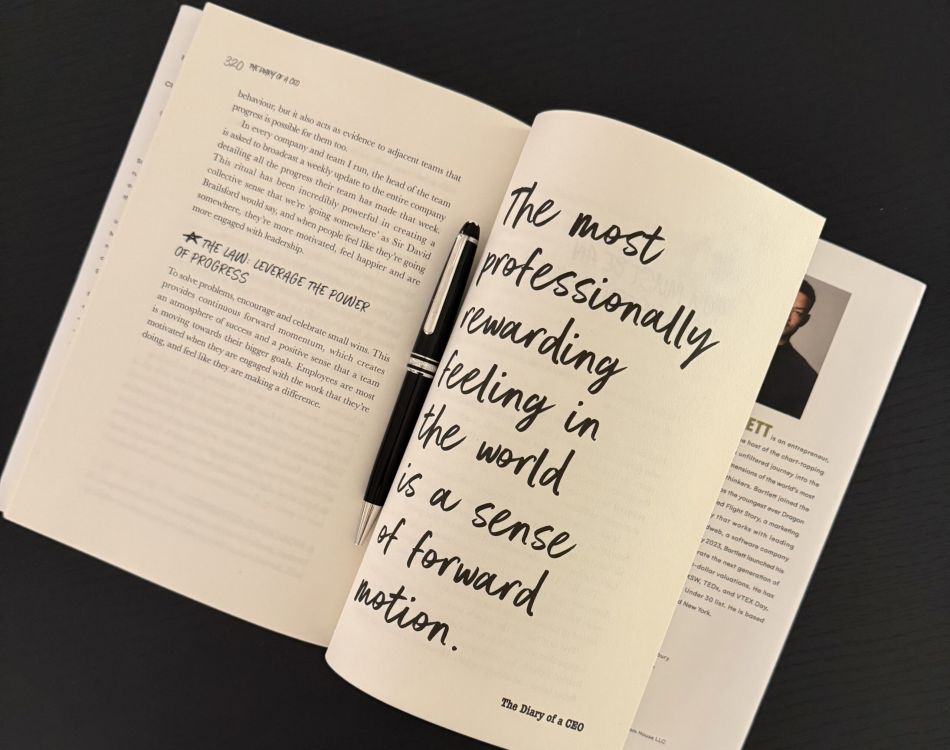 320 THE DIARY OF A CEO
behaviour, but it also acts as evidence to adjacent teams that
progress is possible for them too.
In every company and team I run, the head of the team
is asked to broadcast a weekly update to the entire company
detailing all the progress their team has made that week.
This ritual has been incredibly powerful in creating a
collective sense that we're 'going somewhere' as Sir David
Brailsford would say, and when people feel like they're going
somewhere, they're more motivated, feel happier and are
more engaged with leadership.
THE LAW: LEVERAGE THE POWER
OF PROGRESS
To solve problems, encourage and celebrate small wins. This
provides continuous forward momentum, which creates
an atmosphere of success and a positive sense that a team
is moving towards their bigger goals. Employees are most
motivated when they are engaged with the work that they're
doing, and feel like they are making a difference.
The most
professionally
rewarding
feeling in
the world
is a sense
of forward
motion.
The Diary of a CEO
ETT is an entrepreneur,
host of the chart-topping
unfiltered journey into the
mensions of the world's most
thinkers. Bartlett joined the
as the youngest ever Dragon
Flight Story, a marketing
that works with leading
dweb, a software company
2023, Bartlett launched his
rate the next generation of
-dollar valuations. He has
SW, TEDx, and VTEX Day,
Under 30 list. He is based
New York.
House LLC